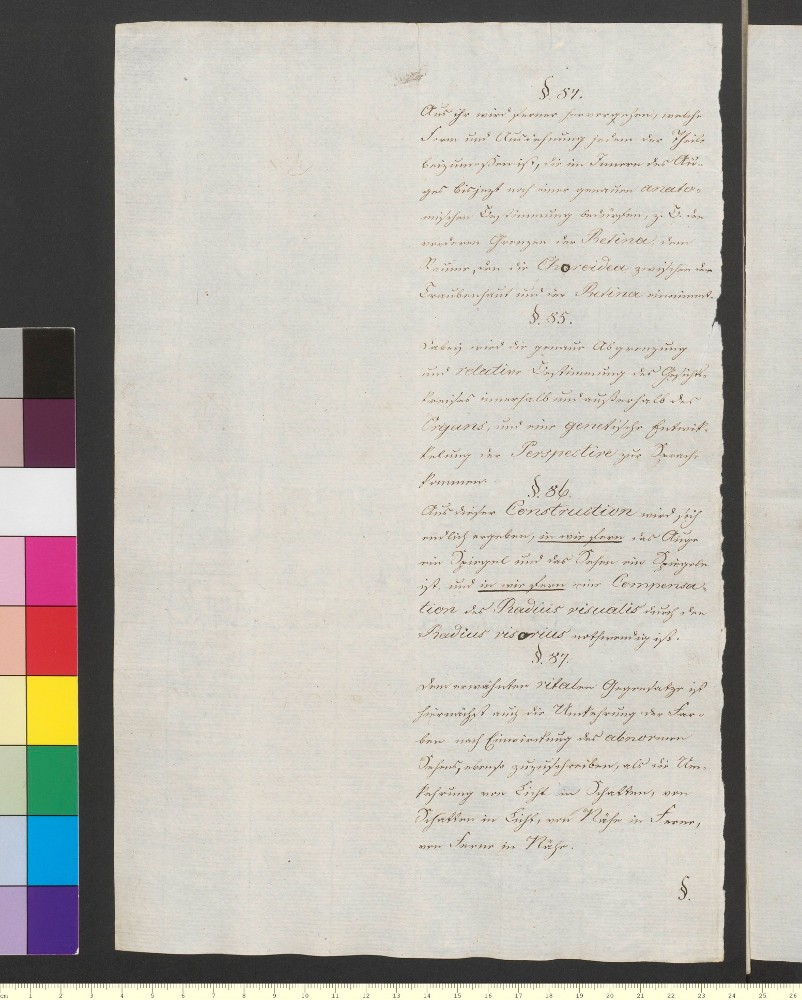 §. 84.
Aus ihr wird ferner hervorgehen, welche
Form und Ausdehnung jedem der Theile
beizumessen ist, die im Innern des Au-
ges bisjezt noch einer genauen anato-
mischen Bestimmung bedürfen, z. B. den
vorderen Grenzen der Retina, dem
Raume, den die Choroidea zwischen der
Traubenhaut und der Retina einnimmt.
§. 85.
Dabey wird die genaue Abgrenzung
und relative Bestimmung des Gesichts-
kreises innerhalb und außerhalb des
Organs, und eine genetische Entwik-
kelung der Perspective zur Sprache
kommen.
§. 86.
Aus dieser Construction wird sich
endlich ergeben, in wie fern das Auge
ein Spiegel und das Sehen ein Spiegeln
ist, und in wie fern eine Compensa-
tion des Radius visualis durch den
Radius visorius nothwendig ist.
§. 87.
Dem erwähnten vitalen Gegensatze ist
hiernächst auch die Umkehrung der Far-
ben nach Einwirkung des abnormen
Sehens, ebenso zuzuschreiben, als die Um-
kehrung von Licht in Schatten, von
Schatten in Licht, von Nähe in Ferne,
von Ferne in Nähe.
§.